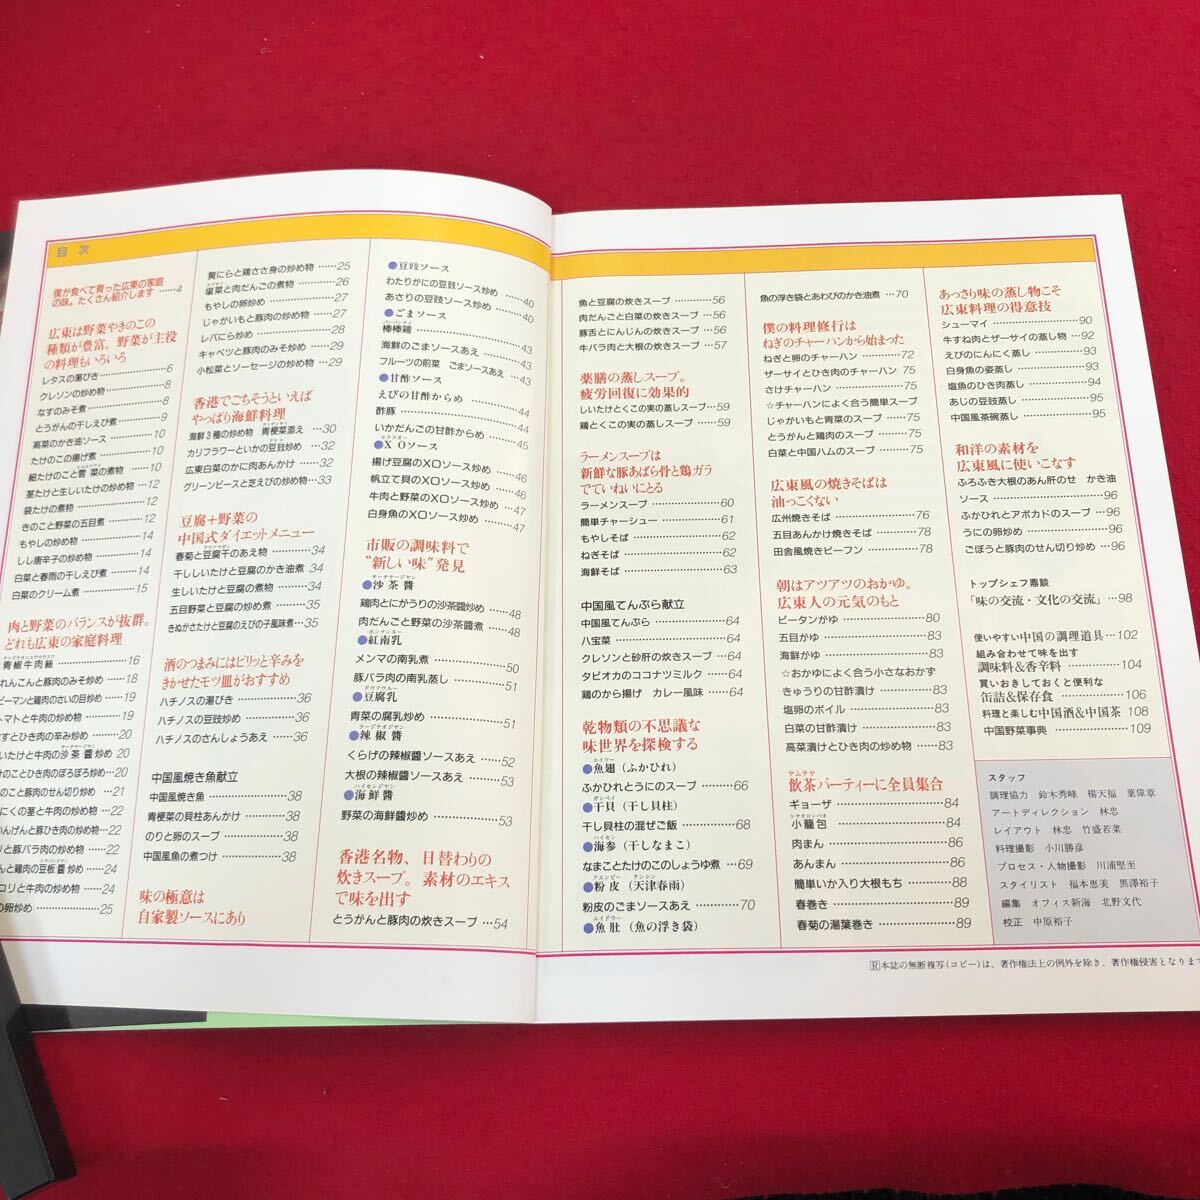 目 次
僕が食べて育った広東の家庭
の味。たくさん紹介します ……4
広東は野菜やきのこの
種類が豊富。野菜が主役
の料理もいろいろ
レタスの湯びき……………6
クレソンの炒め物……………8
なすのみそ煮………………8
とうがんの干しえび煮……9
高菜のかき油ソース………10
たけのこの揚げ煮…………10
細たけのこと雪菜の煮物……10
茎たけと生しいたけの炒め物…12
袋たけの煮物………………12
きのこと野菜の五目煮……12
もやしの炒め物……………14
しし唐辛子の炒め物………14
白菜と春雨の干しえび煮……14
白菜のクリーム煮…………15
肉と野菜のバランスが抜群。
どれも広東の家庭料理
青椒牛肉絲…………………16
れんこんと豚肉のみそ炒め……18
ピーマンと鶏肉のさいの目炒め…19
トマトと牛肉の炒め物………19
すとひき肉の辛み炒め 20
いたけと牛肉の沙茶醤炒め 20
のことひき肉のぼろぼろ炒め…20
のこと豚肉のせん切り炒め…21
にくの茎と牛肉の炒め物……22
いんげんと豚ひき肉の炒め物…22
と豚バラ肉の炒め物………22
んと鶏肉の豆板醤炒め……24
コリと牛肉の炒め物………24
の卵炒め……………………25
黄にらと鶏ささ身の炒め物 ……25
塌菜と肉だんごの煮物………26
もやしの卵炒め………………27
じゃがいもと豚肉の炒め物……27
レバにら炒め…………………28
キャベツと豚肉のみそ炒め……29
小松菜とソーセージの炒め物…29
香港でごちそうといえば
やっぱり海鮮料理
海鮮3種の炒め物 青梗菜添え…30
カリフラワーといかの豆豉炒め…32
広東白菜のかに肉あんかけ……32
グリーンピースと芝えびの炒め物…33
豆腐+野菜の
中国式ダイエットメニュー
春菊と豆腐干のあえ物………34
干ししいたけと豆腐のかき油煮…34
生しいたけと豆腐の煮物………34
五目野菜と豆腐の炒め煮………35
きぬかさたけと豆腐のえびの子風味煮…35
酒のつまみにはピリッと辛みを
きかせたモツ皿がおすすめ
ハチノスの湯びき……………36
ハチノスの豆豉炒め…………36
ハチノスのさんしょうあえ……36
中国風焼き魚献立
中国風焼き魚………………38
青梗菜の貝柱あんかけ……38
のりと卵のスープ……………38
中国風魚の煮つけ…………38
味の極意は
自家製ソースにあり
●豆豉ソース
わたりがにの豆豉ソース炒め…40
あさりの豆豉ソース炒め……40
●ごまソース
棒棒鶏………………………43
海鮮のごまソースあえ………43
フルーツの前菜 ごまソースあえ…43
●甘酢ソース
えびの甘酢からめ……………44
酢豚…………………………44
いかだんごの甘酢からめ……45
●XOソース
揚げ豆腐のXOソース炒め……46
帆立て貝のXOソース炒め……46
牛肉と野菜のXOソース炒め…47
白身魚のXOソース炒め………47
市販の調味料で
“新しい味”発見
●沙茶醤
鶏肉とにがうりの沙茶醤炒め…48
肉だんごと野菜の沙茶醤煮……48
●紅南乳
メンマの南乳煮………………50
豚バラ肉の南乳蒸し…………51
●豆腐乳
青菜の腐乳炒め………………51
●辣椒醤
くらげの辣椒醤ソースあえ……52
大根の辣椒醤ソースあえ……53
●海鮮醤
野菜の海鮮醤炒め……………53
香港名物、日替わりの
炊きスープ。素材のエキス
で味を出す
とうがんと豚肉の炊きスープ …54
魚と豆腐の炊きスープ ………56
肉だんごと白菜の炊きスープ …56
豚舌とにんじんの炊きスープ …56
牛バラ肉と大根の炊きスープ …57
薬膳の蒸しスープ。
疲労回復に効果的
しいたけとくこの実の蒸しスープ…59
鶏とくこの実の蒸しスープ……59
ラーメンスープは
新鮮な豚あばら骨と鶏ガラ
でていねいにとる
ラーメンスープ………………60
簡単チャーシュー……………61
もやしそば……………………62
ねぎそば………………………62
海鮮そば………………………63
中国風てんぷら献立
中国風てんぷら………………64
八宝菜…………………………64
クレソンと砂肝の炊きスープ…64
タピオカのココナツミルク……64
鶏のから揚げ カレー風味……64
乾物類の不思議な
味世界を探検する
●魚翅(ふかひれ)
ふかひれとうにのスープ………66
●干貝(干し貝柱)
干し貝柱の混ぜご飯 …………68
●海参(干しなまこ)
なまことたけのこのしょうゆ煮…69
●粉皮(天津春雨)
粉皮のごまソースあえ…………70
●魚肚(魚の浮き袋)
魚の浮き袋とあわびのかき油煮…70
僕の料理修行は
ねぎのチャーハンから始まった
ねぎと卵のチャーハン…………72
ザーサイとひき肉のチャーハン 75
さけチャーハン…………………75
☆チャーハンによく合う簡単スープ
じゃがいもと青菜のスープ……75
とうがんと鶏肉のスープ………75
白菜と中国ハムのスープ………75
広東風の焼きそばは
油っこくない
広州焼きそば…………………76
五目あんかけ焼きそば………78
田舎風焼きビーフン…………78
朝はアツアツのおかゆ。
広東人の元気のもと
ピータンがゆ…………………80
五目がゆ………………………83
海鮮がゆ………………………83
☆おかゆによく合う小さなおかず
きゅうりの甘酢漬け……………83
塩卵のボイル…………………83
白菜の甘酢漬け………………83
高菜漬けとひき肉の炒め物……83
飲茶パーティーに全員集合
ギョーザ………………………84
小籠包…………………………84
肉まん…………………………86
あんまん………………………86
簡単いか入り大根もち…………88
春巻き…………………………89
春菊の湯葉巻き………………89
あっさり味の蒸し物こそ
広東料理の得意技
シューマイ……………………90
牛すね肉とザーサイの蒸し物…92
えびのにんにく蒸し……………93
白身魚の姿蒸し………………93
塩魚のひき肉蒸し……………94
あじの豆豉蒸し………………95
中国風茶碗蒸し………………95
和洋の素材を
広東風に使いこなす
ふろふき大根のあん肝のせ かき油
ソース…………………………96
ふかひれとアボカドのスープ…96
うにの卵炒め…………………96
ごぼうと豚肉のせん切り炒め…96
トップシェフ鼎談
「味の交流・文化の交流」…98
使いやすい中国の調理道具…102
組み合わせて味を出す
調味料&香辛料…………104
買いおきしておくと便利な
缶詰&保存食……………106
料理と楽しむ中国酒&中国茶 108
中国野菜事典………………109
スタッフ
調理協力 鈴木秀峰 楊天福 葉偉章
アートディレクション 林忠
レイアウト 林忠 竹盛若菜
料理撮影 小川勝彦
プロセス・人物撮影 川浦堅至
スタイリスト 福本恵美 黒澤裕子
編集 オフィス新海 北野文代
校正 中原裕子
Ⓡ本誌の無断複写(コピー)は、著作権法上の例外を除き、著作権侵害となります